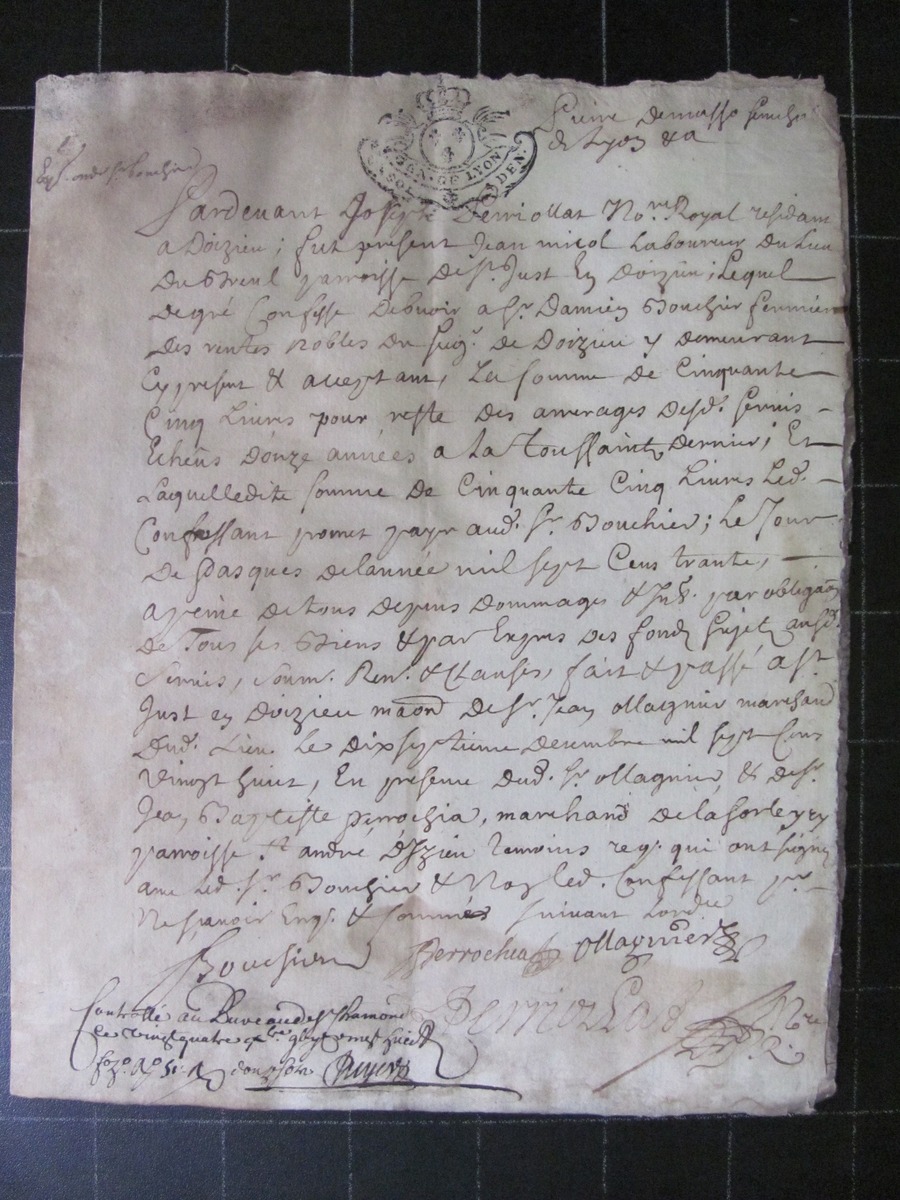 Pierre demasso senechal
de Lyon &a
GEN. DE LYON
SOL DEN.
Exp. aud. sr. bouchier
Pardevant Joseph Derriollat Nore. Royal residant
a Doizieu; fut present Jean nicol Laboureur du Lieu
du Breul parroisse de st. Just En Doizieu; Lequel
de gré Confesse debvoir a sr. Damien Bouchier fermier
des rentes nobles du seigr. de Doizieu y demeurant
Cy present & acceptant, La somme de Cinquante
Cinq Livres pour reste des arrerages desd. servis
Echeus d'onze années a La Toussaint dernier; Et
Laquelledite somme de Cinquante Cinq Livres Led.
Confessant promet payer aud. sr. Bouchier; Le Jour
de Pasques delannée mil sept Cens trante,
a peine de tous depens dommages & Int. par obligaon
de Tous ses Biens & par Expres des fonds sujets ausd.
servis, soum. Ren. & Clauses, fait & passé a st.
Just en Doizieu maon de sr. Jean ollagnier marchand
dud. Lieu Le dix septieme decembre mil sept Cens
vingt huict, En presence dud. sr. ollagnier & de sr.
Jean Baptiste perrochia, marchand de la
parroisse st. andré D'Izieu temoins reqs. qui ont signé
avec Led. sr. Bouchier & Non Led. Confessant pr.
Ne sçavoir Enq. & sommé suivant Lordce
Bouchier Perrochia Ollagnier
Derriollat Nre
Controllé au Bureau de st. chamond
le vingt quatre xbre. mil sept cent vingt huict
fo. 51 R douze sols